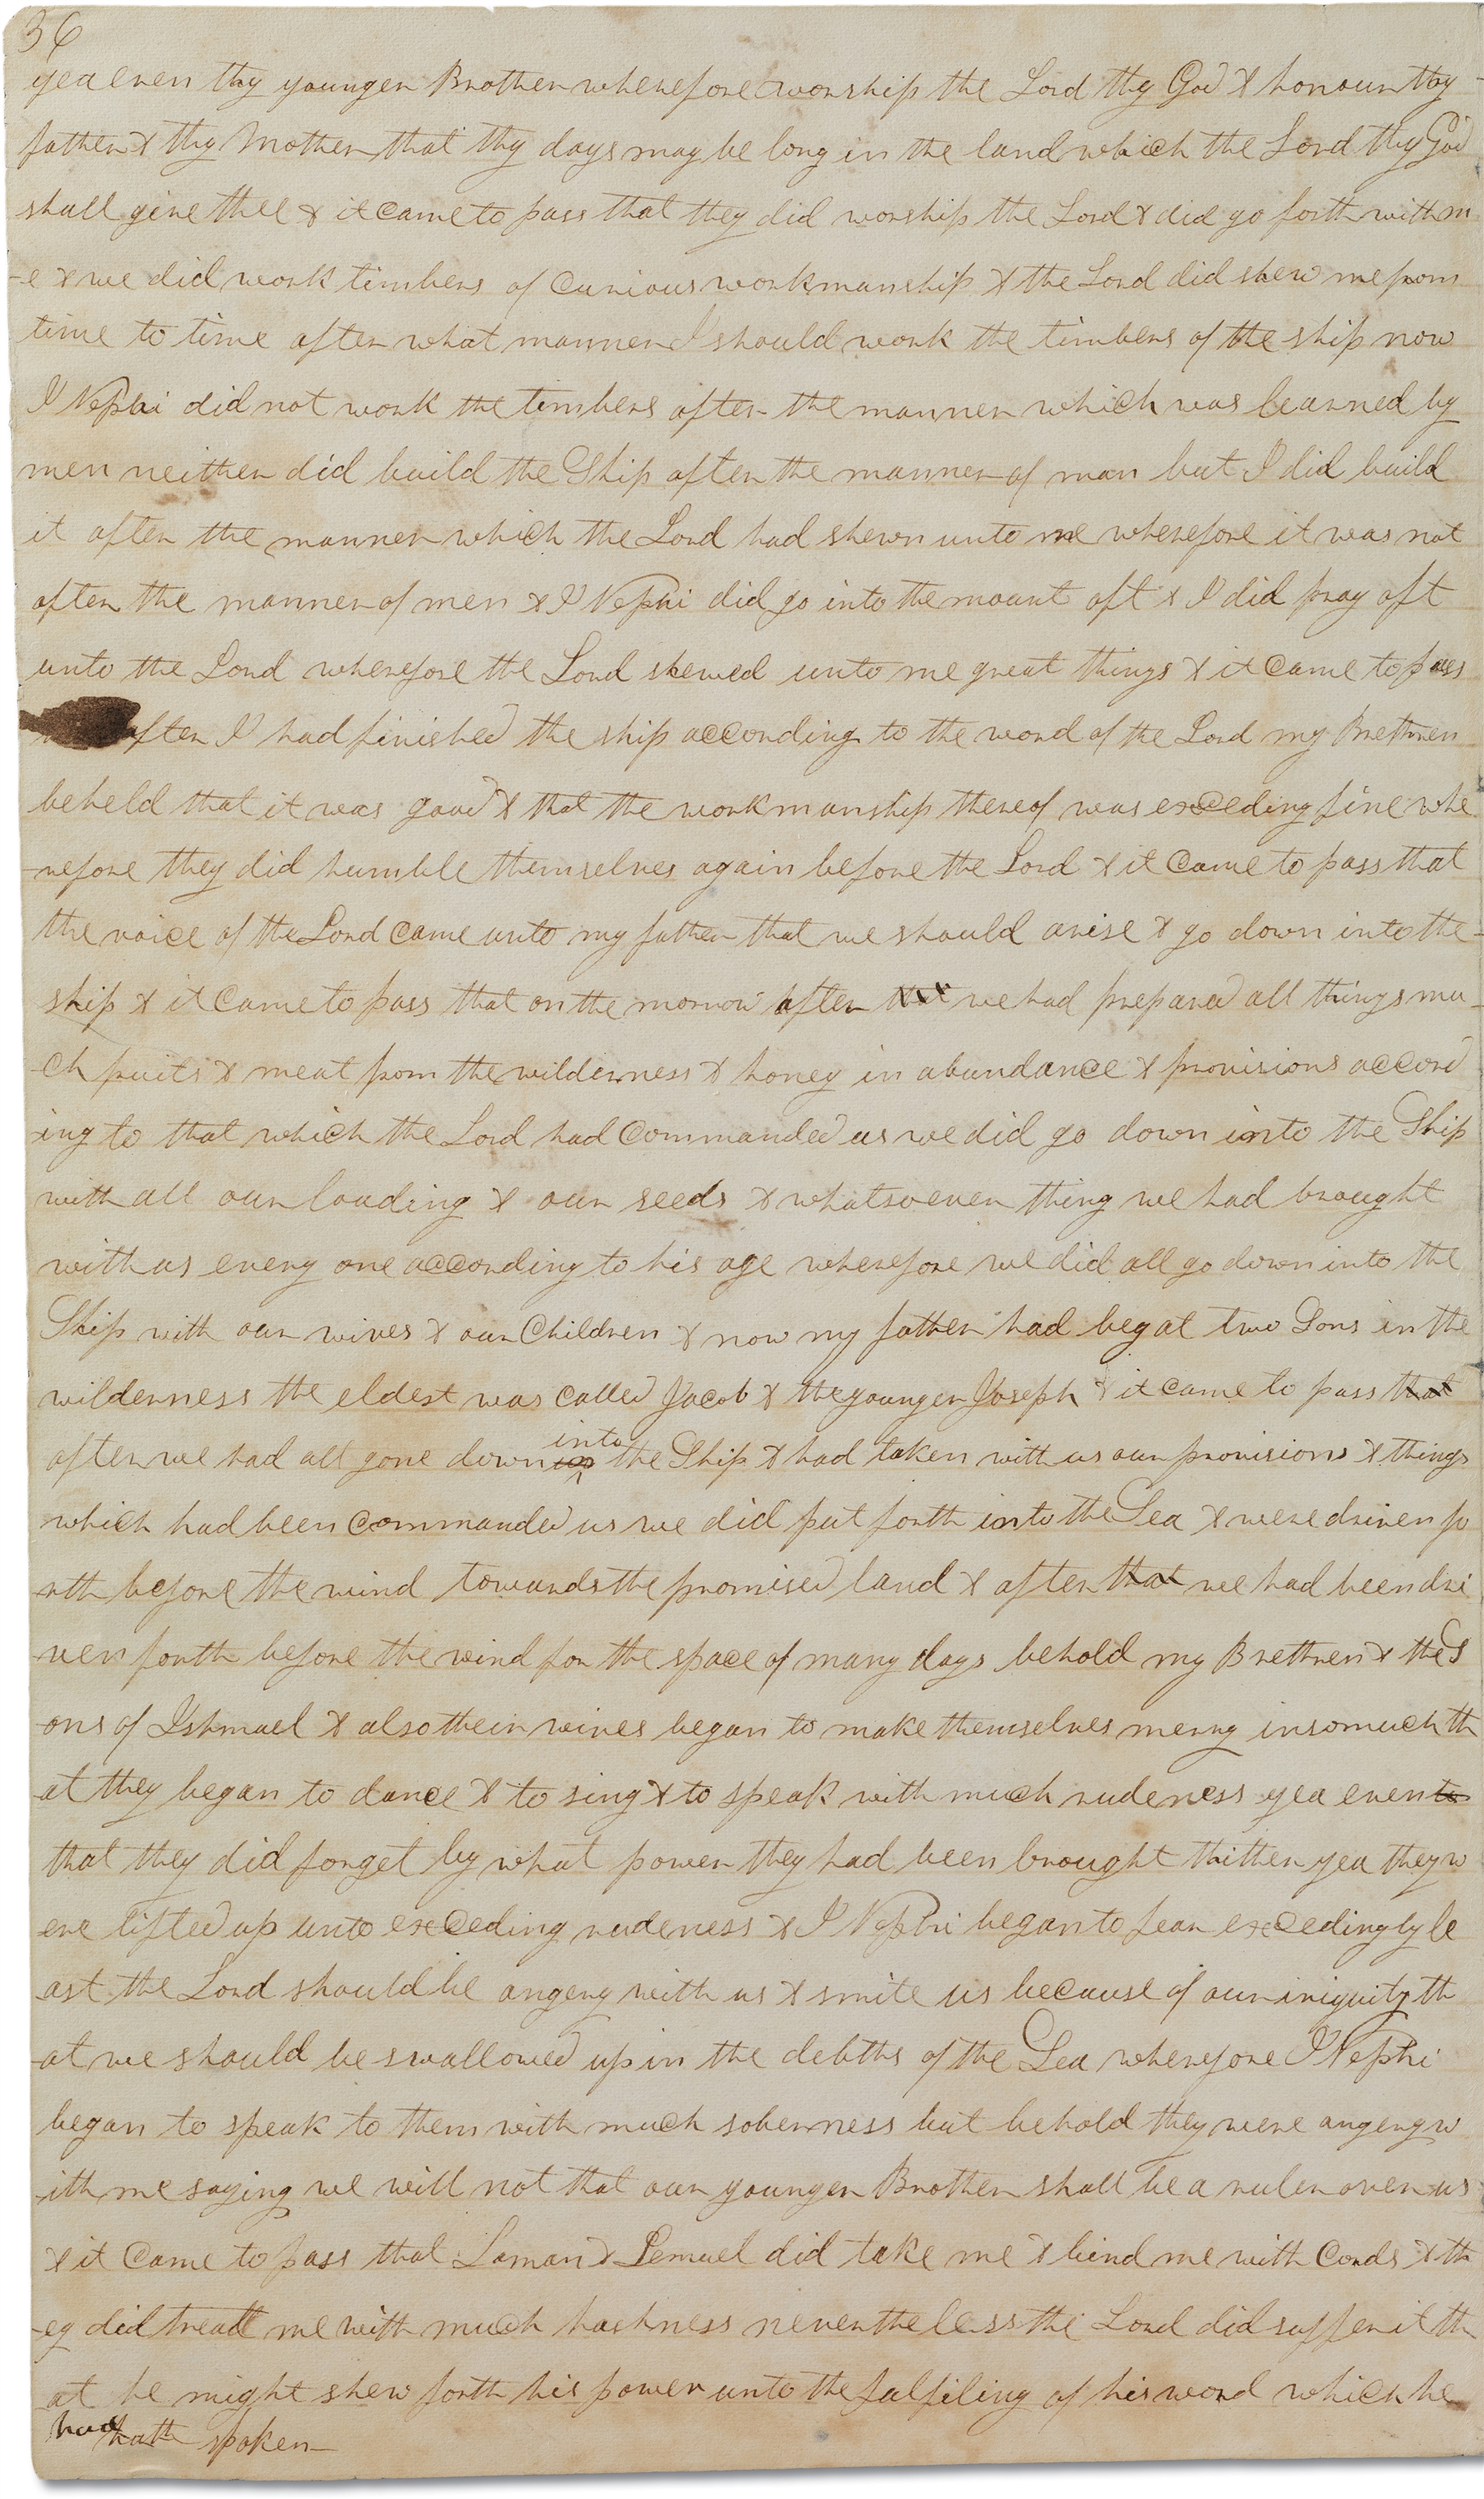 36
yea even thy younger Brother wherefore worship the Lord thy God & honour thy
father & thy Mother that thy days may be long in the land which the Lord thy God
shall give thee & it came to pass that they did worship the Lord & did go forth with m
-e & we did work timbers of curious workmanship & the Lord did shew me from
time to time after what manner I should work the timbers of the ship now
I Nephi did not work the timbers after the manner which was learned by
men neither did build the Ship after the manner of man but I did build
it after the manner which the Lord had shewn unto me wherefore it was not
after the manner of men & I Nephi did go into the mount oft & I did pray oft
unto the Lord wherefore the Lord shewed unto me great things & it came to pass
after I had finished the ship according to the word of the Lord my Brethren
beheld that it was good & that the workmanship thereof was exceding fine whe
-refore they did humble themselves again before the Lord & it came to pass that
the voice of the Lord came unto my father that we should arise & go down into the
ship & it came to pass that on the morrow after that we had prepared all things mu
-ch fruits & meat from the wilderness & honey in abundance & provisions accord
ing to that which the Lord had commanded us we did go down into the Ship
with all our loading & our seeds & whatsoever thing we had brought
with us every one according to his age wherefore we did all go down into the
Ship with our wives & our Children & now my father had begat two Sons in the
wilderness the eldest was called Jacob & the younger Joseph & it came to pass that
after we had all gone down into the Ship & had taken with us our provisions & things
which had been commanded us we did put forth into the Sea & were driven fo
rth before the wind towards the promised land & after that we had been dri
ven forth before the wind for the space of many days behold my Brethren & the S
ons of Ishmael & also their wives began to make themselves merry insomuch th
at they began to dance & to sing & to speak with much rudeness yea even to
that they did forget by what power they had been brought thither yea they w
ere lifted up unto exceding rudeness & I Nephi began to fear excedingly le
ast the Lord should be angery with us & smite us because of our iniquity th
-at we should be swallowed up in the debths of the Sea wherefore I Nephi
began to speak to them with much soberness but behold they were angery w
-ith me saying we will not that our younger Brother shall be a ruler over us
& it came to pass that Laman & Lemuel did take me & bind me with Cords & th
-ey did treatt me with much harshness nevertheless the Lord did suffer it th
at he might shew forth his power unto the fulfiling of his word which he
had hath spoken